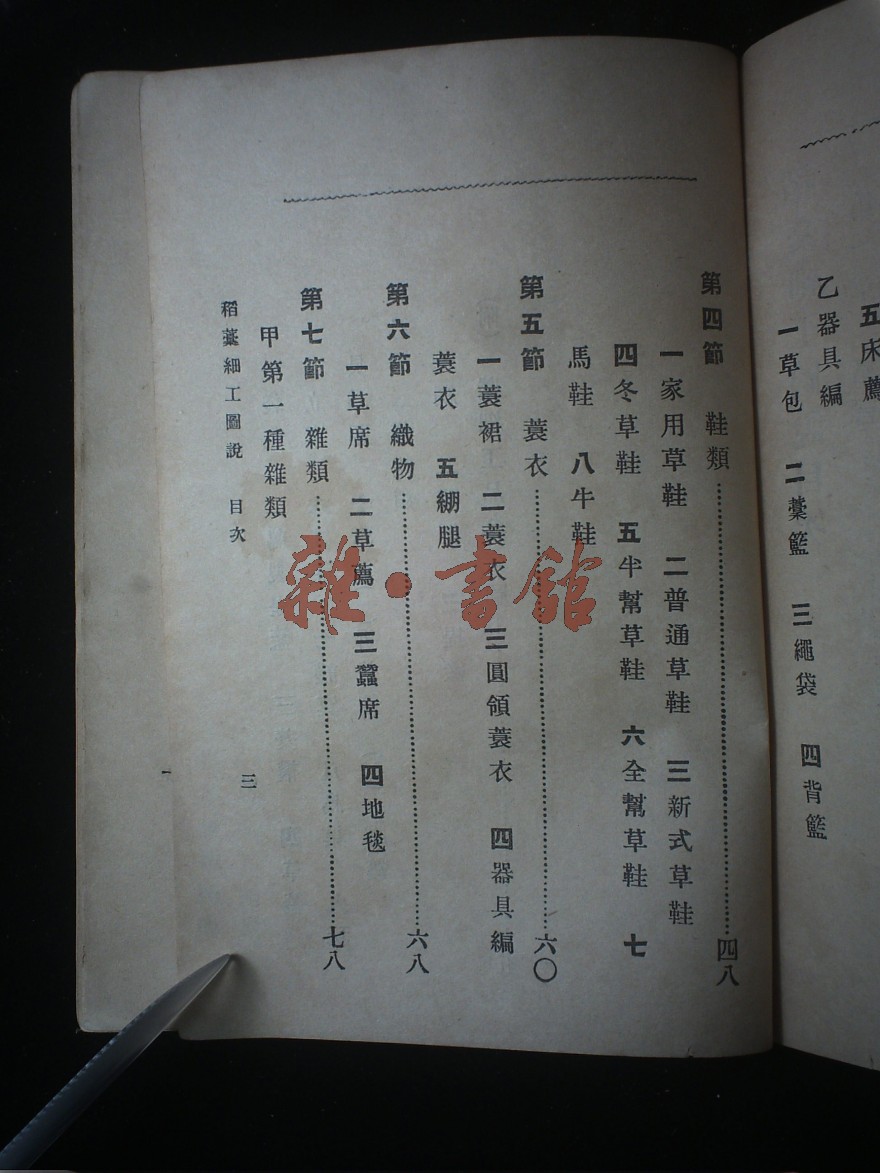 五床薦
乙器具編
一草包　二藁籃　三繩袋　四背籃
第四節　鞋類……四八
一家用草鞋　二普通草鞋　三新式草鞋
四冬草鞋　五半幫草鞋　六全幫草鞋　七
馬鞋　八牛鞋
第五節　蓑衣……六〇
一蓑裙　二蓑衣　三圓領蓑衣　四器具編
蓑衣　五綳腿
第六節　織物……六八
一草席　二草薦　三蠶席　四地毯
第七節　雜類……七八
甲第一種雜類
稻藁細工圖說　目次　三
雜·書館